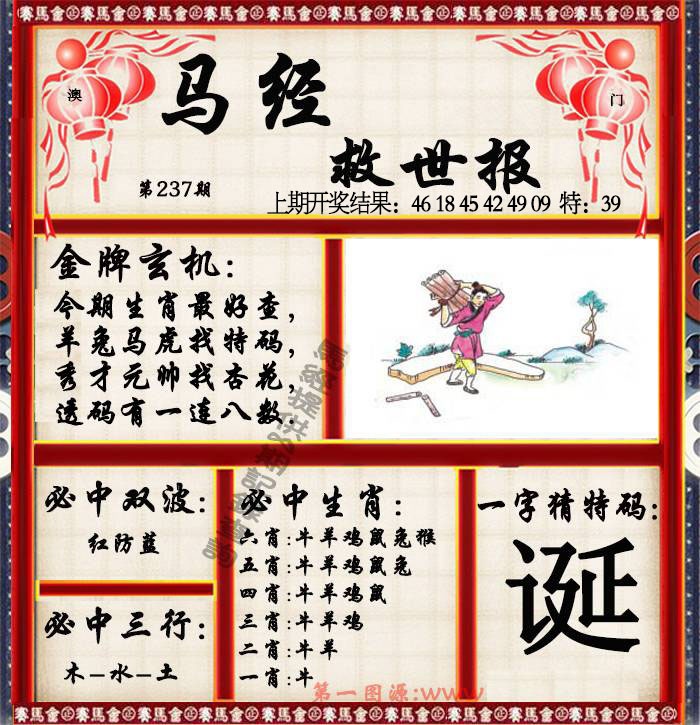 賽馬會正賽馬會正賽馬會正賽馬會正賽馬會正賽馬會正賽馬會正
澳 门
马经
救世报
第237期
上期开奖结果：46 18 45 42 49 09 特：39
金牌玄机：
今期生肖最好查，
羊兔马虎找特码，
秀才元帅找杏花，
透码有一连八数.
必中双波：
红防蓝
必中三行：
木–水–土
必中生肖：
六肖:牛羊鸡鼠兔猴
五肖:牛羊鸡鼠兔
四肖:牛羊鸡鼠
三肖:牛羊鸡
二肖:牛羊
一肖:牛
一字猜特码：
诞
第一图源:www